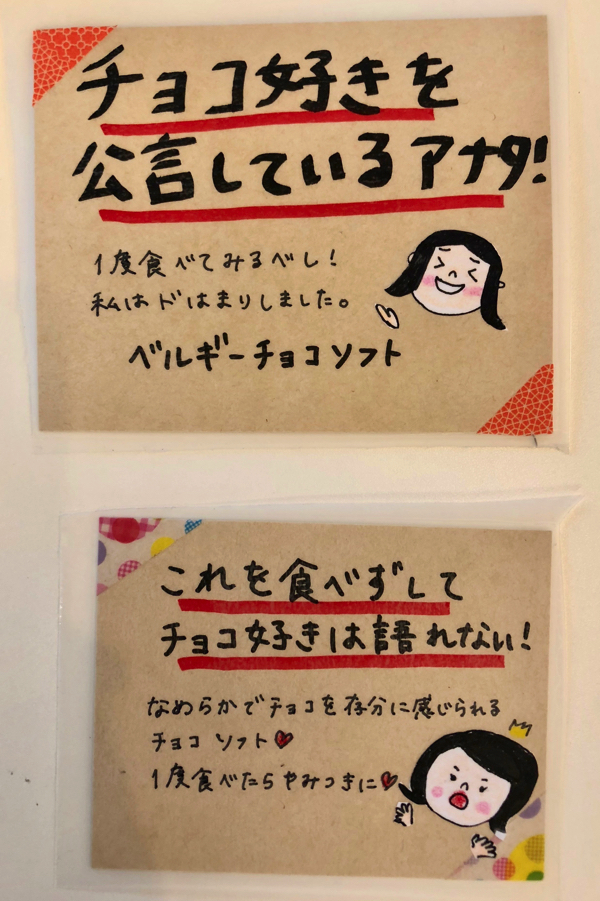 チョコ好きを
公言しているアナタ!
1度食べてみるべし!
私はドはまりしました。
ベルギーチョコソフト
これを食べずして
チョコ好きは語れない!
なめらかでチョコを存分に感じられる
チョコソフト♥
1度食べたらやみつきに♥